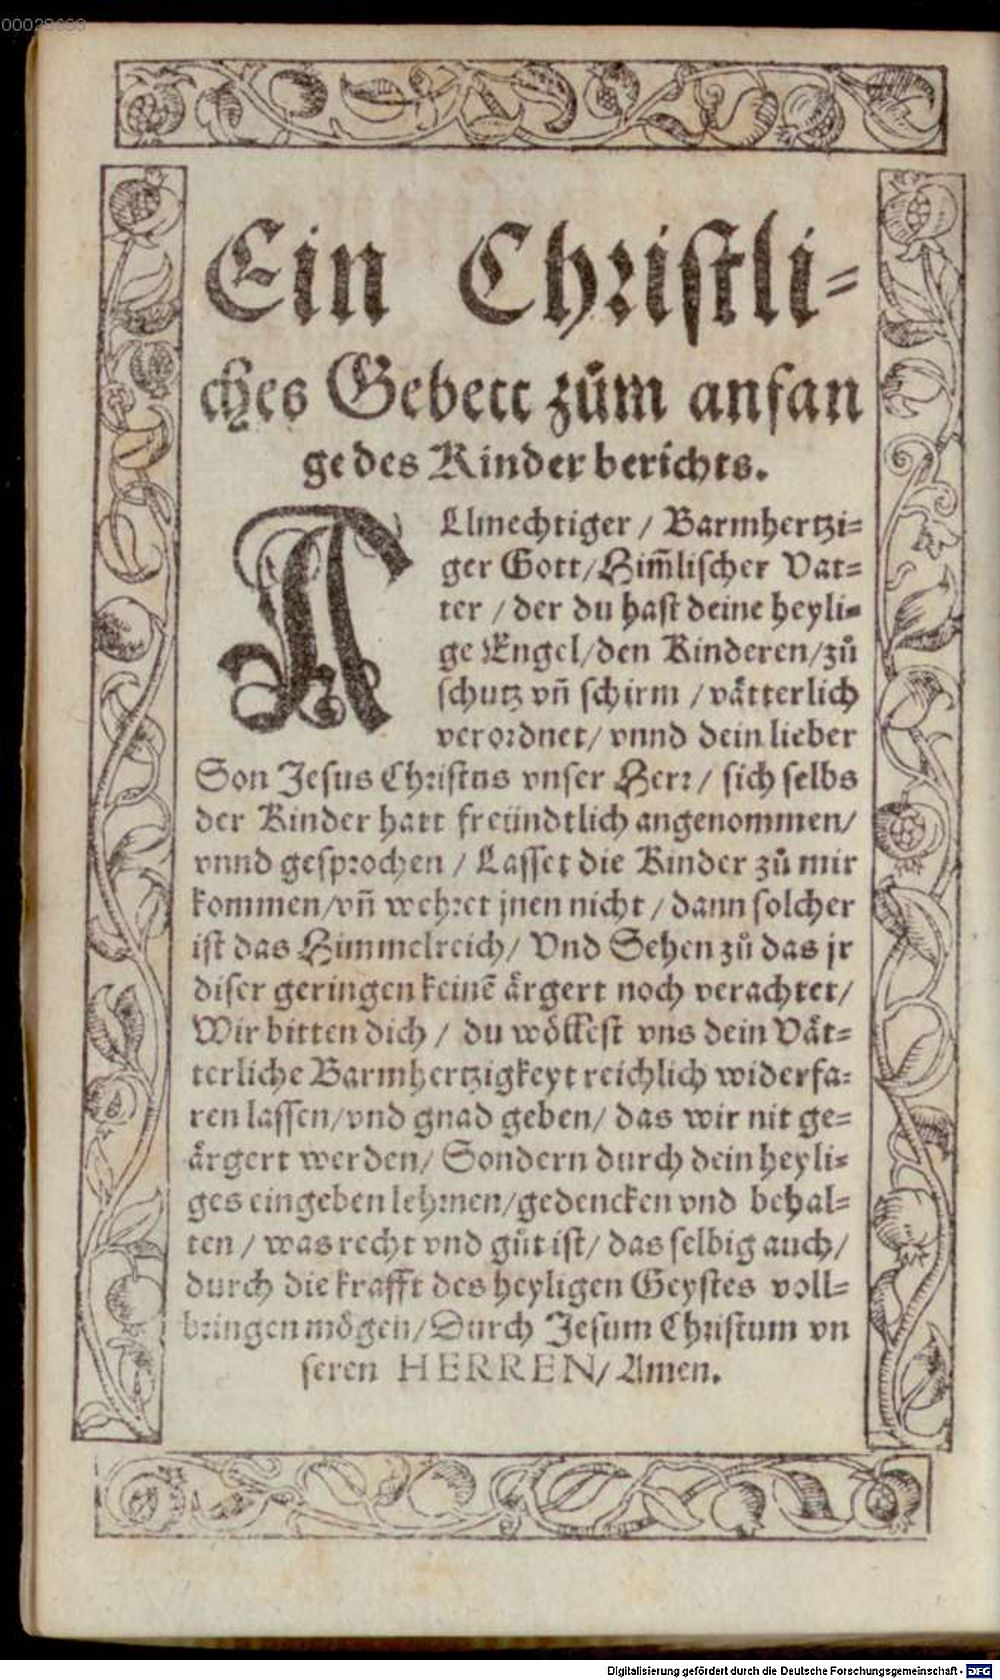 00023699
Ein Chriſtli⸗
ches Gebett zům anfan
ge des Kinder berichts.
ALlmechtiger / Barmhertzi⸗
ger Gott / Him̃liſcher Vat⸗
ter / der du haſt deine heyli⸗
ge Engel / den Kinderen / zů
ſchutz vñ ſchirm / vätterlich
verordnet / vnnd dein lieber
Son Jeſus Chriſtus vnſer Herr / ſich ſelbs
der Kinder hatt freündtlich angenommen /
vnnd geſprochen / Laſſet die Kinder zů mir
kommen / vñ wehret jnen nicht / dann ſolcher
iſt das Himmelreich / Vnd Sehen zů das jr
diſer geringen keinē ärgert noch verachtet /
Wir bitten dich / du wölleſt vns dein Vät⸗
terliche Barmhertzigkeyt reichlich widerfa⸗
ren laſſen / vnd gnad geben / das wir nit ge⸗
ärgert werden / Sondern durch dein heyli⸗
ges eingeben lehrnen / gedencken vnd behal⸗
ten / was recht vnd gůt iſt / das ſelbig auch /
durch die krafft des heyligen Geyſtes voll⸗
bringen mögen / Durch Jeſum Chriſtum vn
ſeren HERREN / Amen.
Digitalisierung gefördert durch die Deutsche Forschungsgemeinschaft - DFG